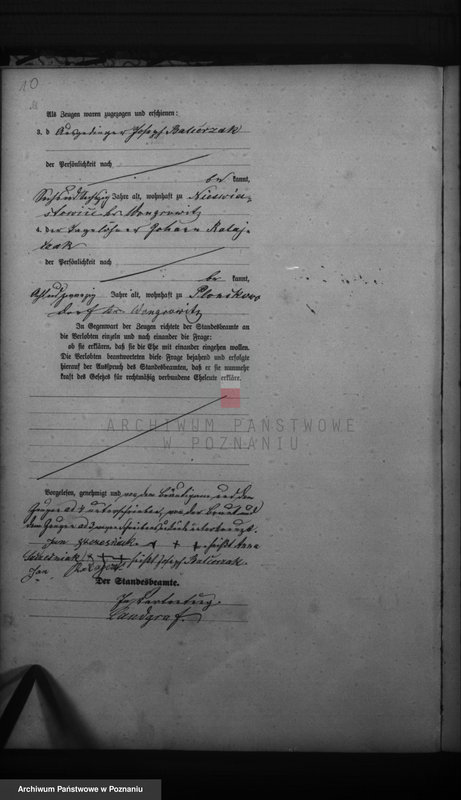 10
Als Zeugen waren zugezogen und erschienen:
3. d Ausgedinger Joseph Balcerzak
der Persönlichkeit nach
be kannt,
Sechsundsechzig Jahre alt, wohnhaft zu Nieświa-
stowice br Wongrowitz
4. der Tagelöhner Johann Rataj-
czak
der Persönlichkeit nach
be kannt,
Achtundzwanzig Jahre alt, wohnhaft zu
dorf br Wongrowitz
In Gegenwart der Zeugen richtete der Standesbeamte an
die Verlobten einzeln und nach einander die Frage:
ob sie erklären, daß sie die Ehe mit einander eingehen wollen.
Die Verlobten beantworteten diese Frage bejahend und erfolgte
hierauf der Ausspruch des Standesbeamten, daß er sie nunmehr
kraft des Gesetzes für rechtmäßig verbundene Eheleute erkläre.
ARCHIWUM PAŃSTWOWE
W POZNANIU
Vorgelesen, genehmigt und von dem Bräutigam und dem
Zeugen ad 4 unterschrieben, von der Braut und
dem Zeugen ad 3 wegen Schreibensunkunde unterkreuzt.
Jan + + + heißt Anna
+ + + heißt Joseph Balcerzak.
Jan
Der Standesbeamte.
In Vertretung.
Landgraf.
Archiwum Państwowe w Poznaniu